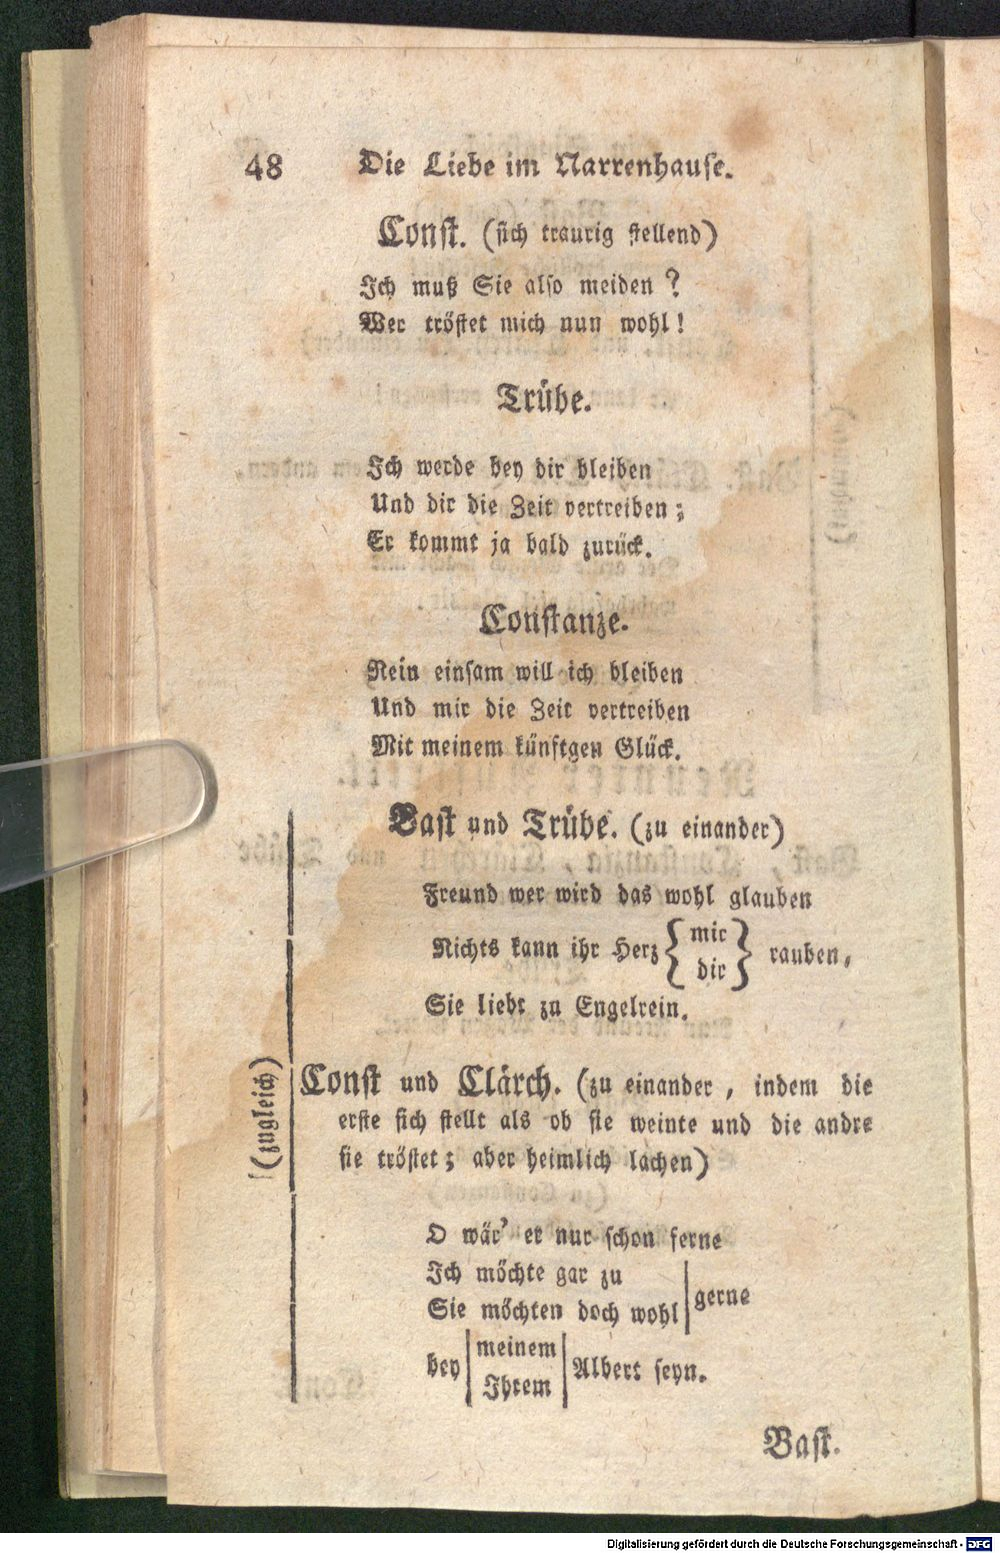 48 Die Liebe im Narrenhause.
Const. (sich traurig stellend)
Ich muß Sie also meiden ?
Wer tröstet mich nun wohl !
Trübe.
Ich werde bey dir bleiben
Und dir die Zeit vertreiben ;
Er kommt ja bald zurück.
Constanze.
Nein einsam will ich bleiben
Und mir die Zeit vertreiben
Mit meinem künftgen Glück.
Bast und Trübe. (zu einander)
Freund wer wird das wohl glauben
Nichts kann ihr Herz { mir
dir } rauben,
Sie liebt zu Engelrein.
(zugleich)
Const und Clärch. (zu einander , indem die
erste sich stellt als ob sie weinte und die andre
sie tröstet ; aber heimlich lachen)
O wär' er nur schon ferne
Ich möchte gar zu
Sie möchten doch wohl | gerne
bey | meinem
Ihrem | Albert seyn.
Bast.
Digitalisierung gefördert durch die Deutsche Forschungsgemeinschaft - DFG